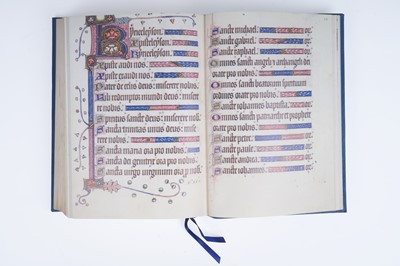 Kyrieleyson.
Xpisteleyson.
Kyrieleyson.
Xpiste audi nos.
Xpiste exaudi nos.
Pater de celis deus: miserere nobis.
Fili redemptor mundi deus: miserere
nobis.
Spiritus sancte deus: miserere nobis.
Sancta trinitas unus deus: miserere
nobis.
Sancta maria ora pro nobis.
Sancta dei genitrix ora pro nobis.
Sancta virgo virginum ora pro nobis
Sancte michael. or.
Sancte gabriel. or.
Sancte or.
Omnes sancti angeli et archangeli dei
orate pro nobis.
Omnes sancti beatorum spirituum
ordines orate pro nobis.
Sancte iohannes baptista. or.
Omnes sancti patriarche et prophete
orate pro nobis.
Sancte petre. or.
Sancte paule. or.
Sancte andrea. or.
Sancte iohannes. or.